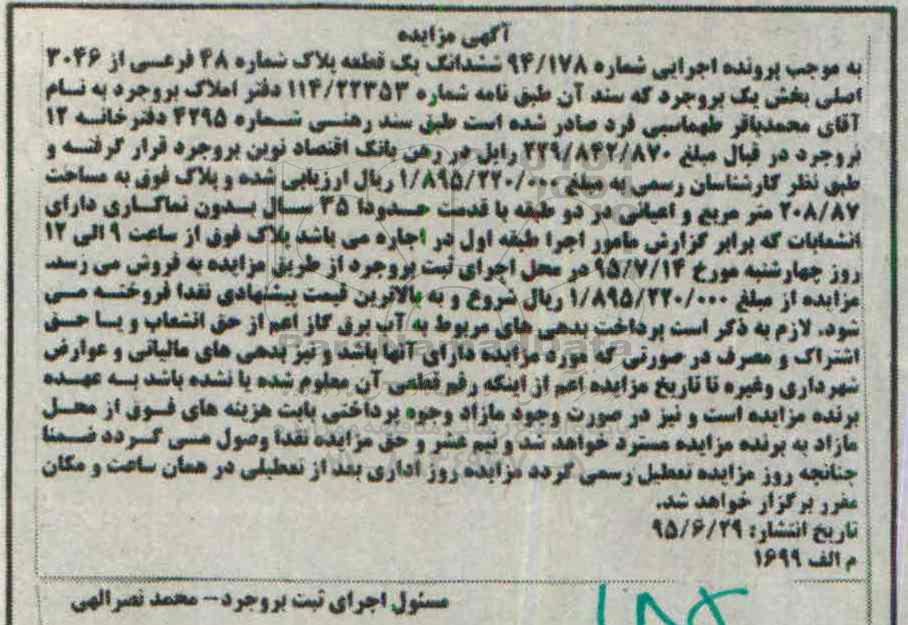 آگهی مزایده
به موجب پرونده اجرایی شماره ۹۴/۱۷۸ ششدانگ یک قطعه پلاک شماره ۴۸ فرعسی از ۳۰۴۶
اصلی بخش یک بروجرد که سند آن طبق نامه شماره ۱۱۴/۲۲۳۵۳ دفتر املاک بروجرد به نام
آقای محمدباقر طهماسبی فرد صادر شده است طبق سند رهنی شماره ۴۲۹۵ دفترخانه ۱۲
بروجرد در قبال مبلغ ۲۲۹/۸۴۲/۸۷۰ رایل در رهن بانک اقتصاد نوین بروجرد قرار گرفته و
طبق نظر کارشناسان رسمی به مبلغ ۱/۸۹۵/۲۲۰/۰۰۰ ریال ارزیابی شده و پلاک فوق به مساحت
۲۰۸/۸۷ متر مربع و اعیانی در دو طبقه با قدمت حدودا ۳۵ سال بدون نماکاری دارای
انشعابات که برابر گزارش مامور اجرا طبقه اول در اجاره می باشد پلاک فوق از ساعت ۹ الی ۱۲
روز چهارشنبه مورخ ۹۵/۷/۱۴ در محل اجرای ثبت بروجرد از طریق مزایده به فروش می رسد.
مزایده از مبلغ ۱/۸۹۵/۲۲۰/۰۰۰ ریال شروع و به بالاترین قیمت پیشنهادی نقدا فروخته می
شود. لازم به ذکر است پرداخت بدهی های مربوط به آب برق گاز اعم از حق انشعاب و یا حق
اشتراک و مصرف در صورتی که مورد مزایده دارای آنها باشد و نیز بدهی های مالیاتی و عوارض
شهرداری وغیره تا تاریخ مزایده اعم از اینکه رقم قطعی آن معلوم شده یا نشده باشد به عهده
برنده مزایده است و نیز در صورت وجود مازاد وجوه پرداختی بابت هزینه های فوق از محل
مازاد به برنده مزایده مسترد خواهد شد و نیم عشر و حق مزایده نقدا وصول می گردد ضمنا
چنانچه روز مزایده تعطیل رسمی گردد مزایده روز اداری بعد از تعطیلی در همان ساعت و مکان
مقرر برگزار خواهد شد.
تاریخ انتشار: ۹۵/۶/۲۹
م الف ۱۶۹۹
مسئول اجرای ثبت بروجرد- محمد نصرالهی